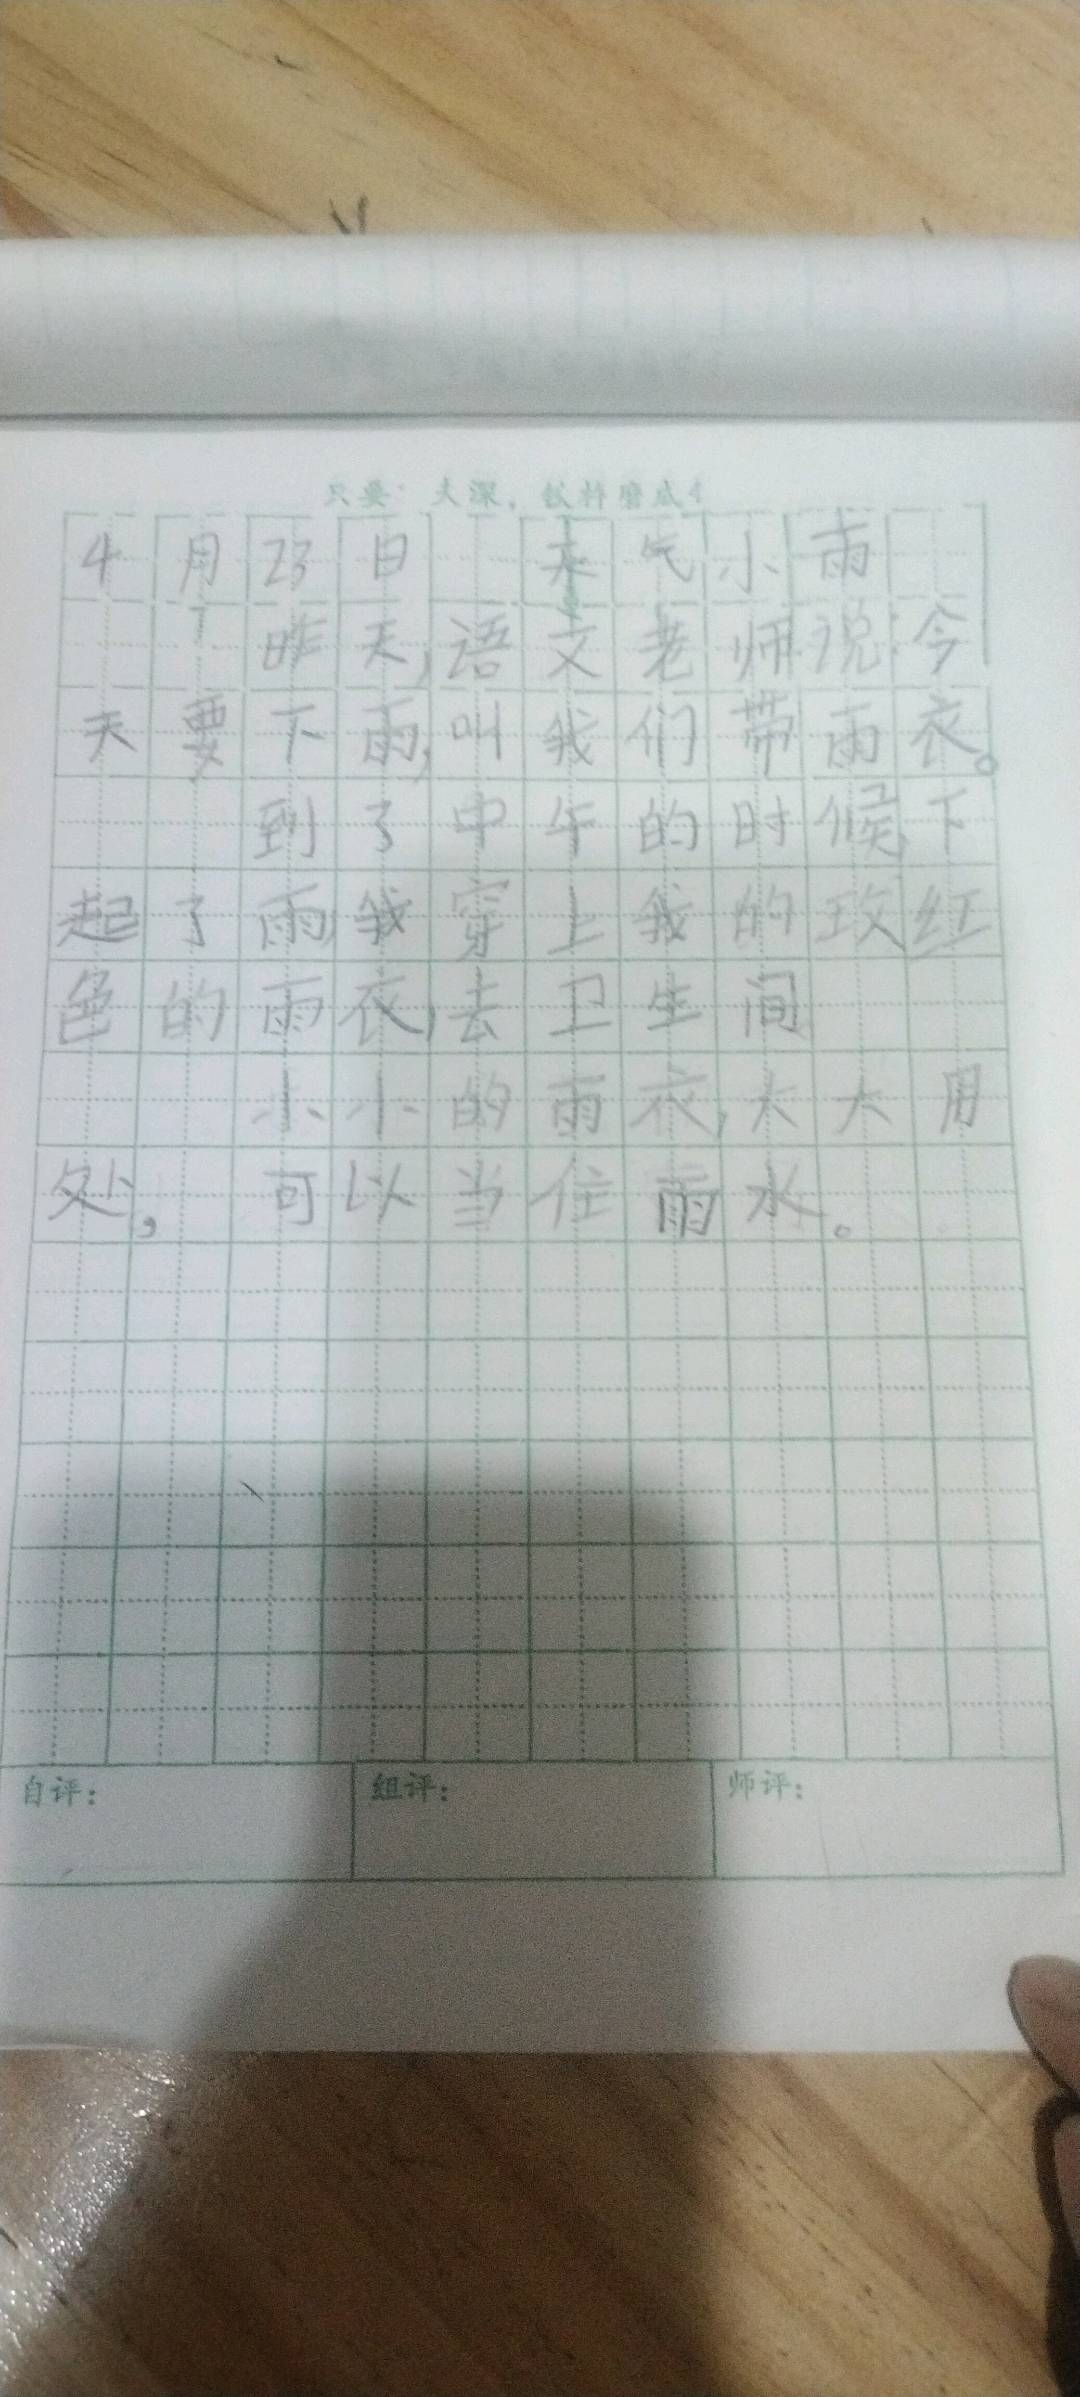 4月23日 天气小雨
昨天,语文老师说:今
天要下雨,叫我们带雨衣。
到了中午的时候,下
起了雨,我穿上我的玫红
色的雨衣,去卫生间
小小的雨衣,大大用
处, 可以当住雨水。
自评: 组评: 师评: